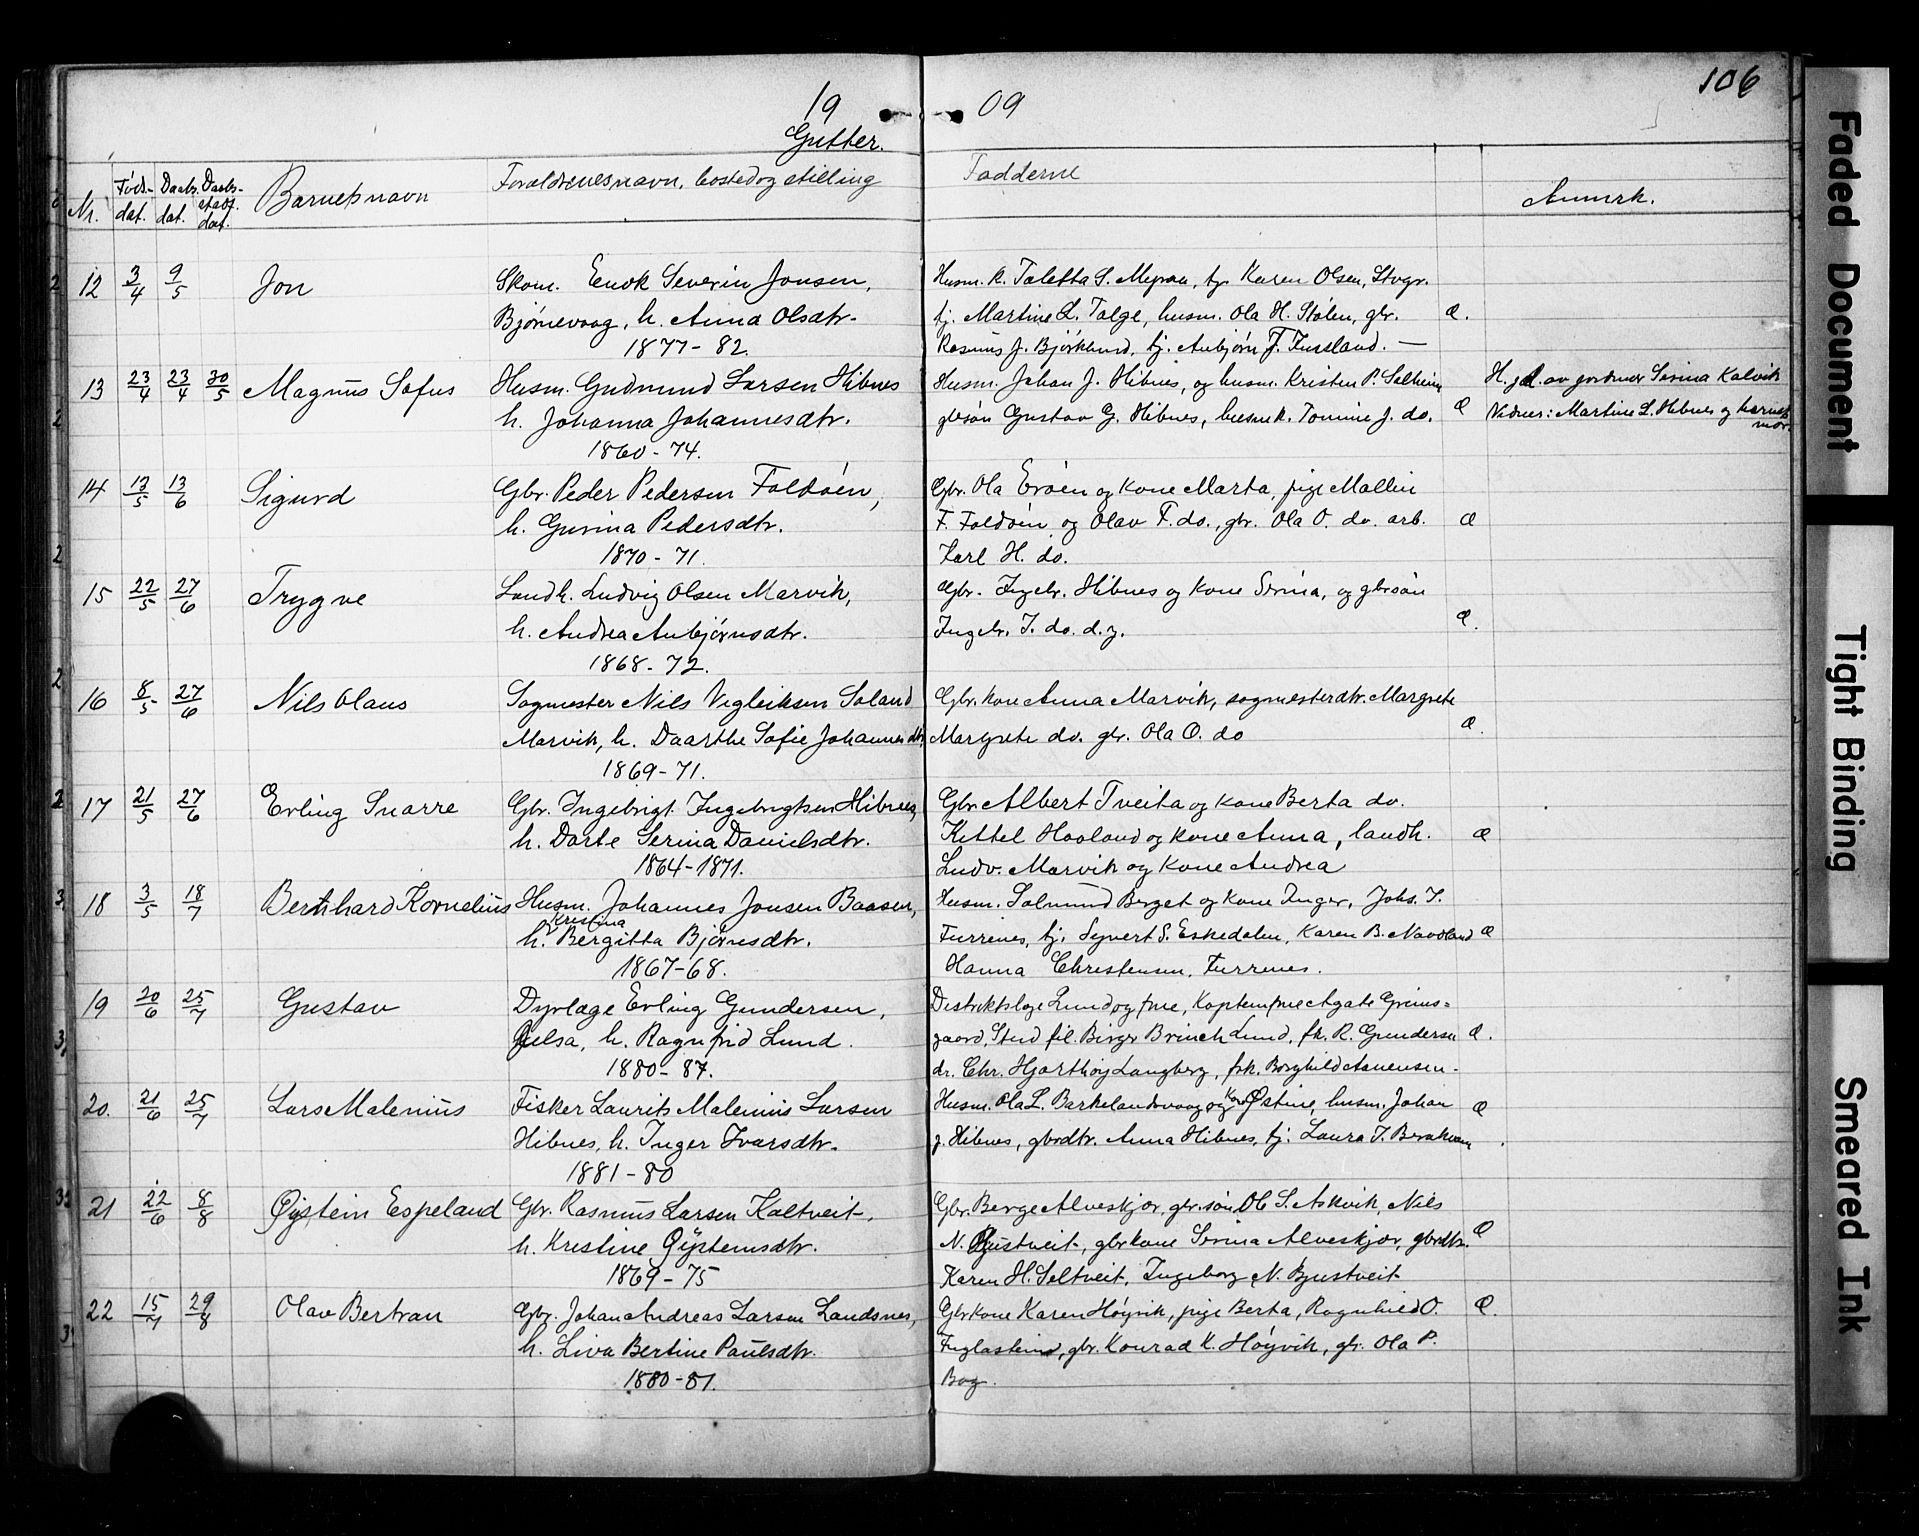 106
19 09
Gutter.
Nr. Føds-dat. Daabs.dat. Daabs-stadf.dat. Barnets navn Forældrenes navn, bosted og stilling Fadderne Anmrk.
12 3/4 9/5 Jon Skom. Enok Severin Jonsen, Husm. k. Taletta S. Myraa, tj. Karen Olsen, Stvgr.
Bjørnevaag, h. Anna Olsdtr. tj. Martine L. Talge, husm. Ola H. Stølen, gbr. Æ.
1877-82. Rasmus J. Bjørklund, tj. Anbjørn T. Fussland. —
13 23/4 23/4 30/5 Magnus Sofus Husm. Gudmund Larsen Hibnes Husm. Johan J. Hibnes, og husm. Kristen P. Solheim H. d. av jordmor Serina Kalvik
h. Johanna Johannesdtr. gbrsøn Gustav G. Hibnes, husm.k. Tomine J. do. Æ Vidner: Martine L. Hibnes og barnets mor.
1860-74.
14 13/5 13/6 Sigurd Gbr. Peder Pedersen Foldøen, Gbr. Ola Erøen og kone Marta, pige Mallin
h. Gurina Pedersdtr. F. Foldøen og Olav F. do., gbr. Ola O. do. arb. Æ
1870-71. Karl H. do.
15 22/5 27/6 Trygve Landh. Ludvig Olsen Marvik, Gbr. Ingebr. Hibnes og kone Serina, og gbrsøn
h. Andrea Anbjørnsdtr. Ingebr. I. do. d.y. Æ.
1868-72.
16 8/5 27/6 Nils Olaus Sagmester Nils Vegleiksen Saland Gbr. kone Anna Marvik, sagmesterdtr. Margrete
Marvik, h. Daarthe Sofie Johannesdtr. Margrete do. gbr. Ola O. do Æ.
1869-71.
17 21/5 27/6 Erling Snorre Gbr. Ingebrigt Ingebrigtsen Hibnes, Gbr. Albert Tveita og kone Berta do.
h. Dorte Serina Danielsdtr. Kittel Haaland og kone Anna, landh. Æ
1864-1871. Ludv. Marvik og kone Andrea
18 3/5 18/7 Bernhard Kornelius Husm. Johannes Jonsen Baasen, Husm. Salmund Berget og kone Inger, Johs. I.
h. Kristina Bergitta Bjørnsdtr. Furrenes, tj. Syvert S. Eskedalen, Karen B. Navdland Æ
1867-68. Hanna Christensen, Furrenes.
19 20/6 25/7 Gustav Dyrlæge Erling Gundersen, Distriktslæge Lund og frue, Kapteinfrue Agate Grims=
Jelsa, h. Ragnfrid Lund. gaard, Stud fil. Birger Brinch Lund, frk. R. Gundersen Æ.
1880-87. dr. Chr. Hjorthøy Langberg, frk. Borghild Aanensen.
20. 21/6 25/7 Lars Malenius Fisker Laurits Malenius Larsen Husm. Ola L. Barkelandsvaag og kone Østine, husm. Johan Æ
Hibnes, h. Inger Ivarsdtr. J. Hibnes, gbrdtr. Anna Hibnes, tj. Laura I.
1881-80
21 22/6 8/8 Øystein Espeland Gbr. Rasmus Larsen Kaltveit, Gbr. Berge Alveskjær, gbr.søn Ole S. Askvik, Nils
h. Kristine Øysteinsdtr. N. Bjustveit, gbrkone Serina Alveskjær, gbrdtr. Æ
1869-75 Karen H. Seltveit, Ingeborg N. Bjustveit
22 15/7 29/8 Olav Bertran Gbr. Johan Andreas Larsen Landsnes, Gbrkone Karen Høyvik, pige Berta, Ragnhild O. Æ.
h. Liva Bertine Paulsdtr. Fuglestein, gbr. Konrad K. Høyvik, gbr. Ola P.
1880-81. Bog.
Faded Document
Tight Binding
Smeared Ink